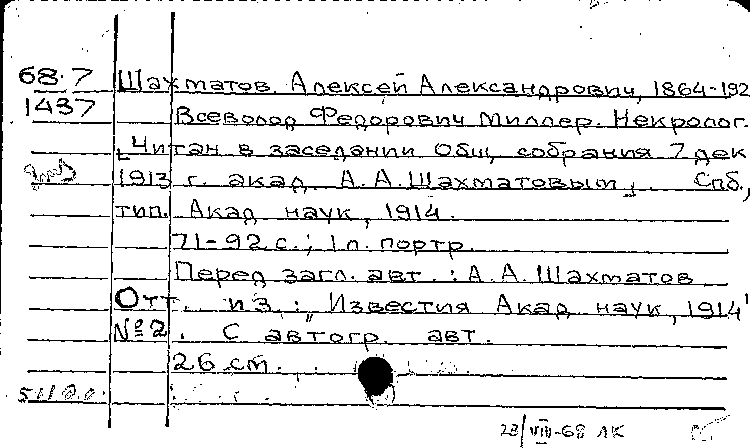 68.7 Шахматов. Алексей Александрович, 1864-192
1437 Всеволод Федорович Миллер. Некролог.
[Читан в заседании Общ. собрания 7 дек
1913 г. акад. А.А.Шахматовым]. Спб.,
тип. Акад. наук, 1914.
71-92 с.; 1 л. портр.
Перед загл. авт.: А.А.Шахматов
Отт. из: „Известия Акад. наук, 1914"
№2. С автогр. авт.
26 см.
23/VIII-68 ЛК